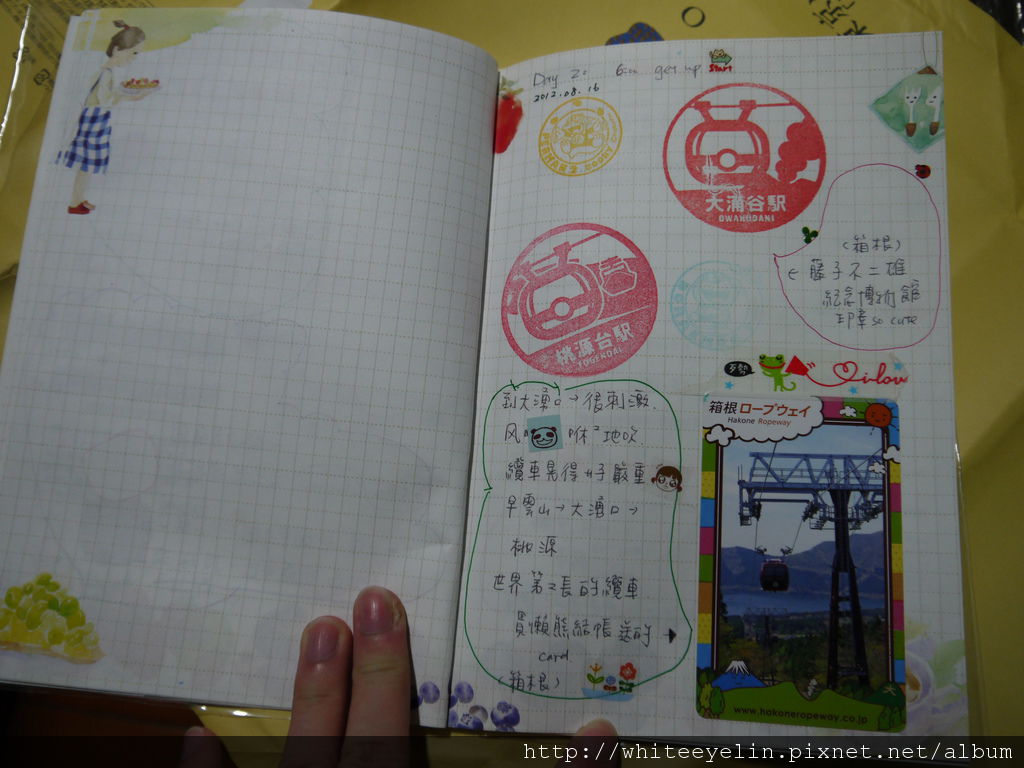 Day 2: 6:00 get up Start
2012.08.16
大涌谷駅
OWAKUDANI
桃源台駅
TOGENDAI
(箱根)
← 藤子不二雄
紀念博物館
印章 so cute
歹勢
i lov
到大湧口→很刺激.
风
咻²地吹.
纜車晃得好嚴重
早雲山→大湧口→
桃源
世界第2長的纜車.
買懶熊結帳送的
card.
(箱根)
箱根ロープウェイ
Hakone Ropeway
www.hakoneropeway.co.jp
http://whiteeyelin.pixnet.net/album